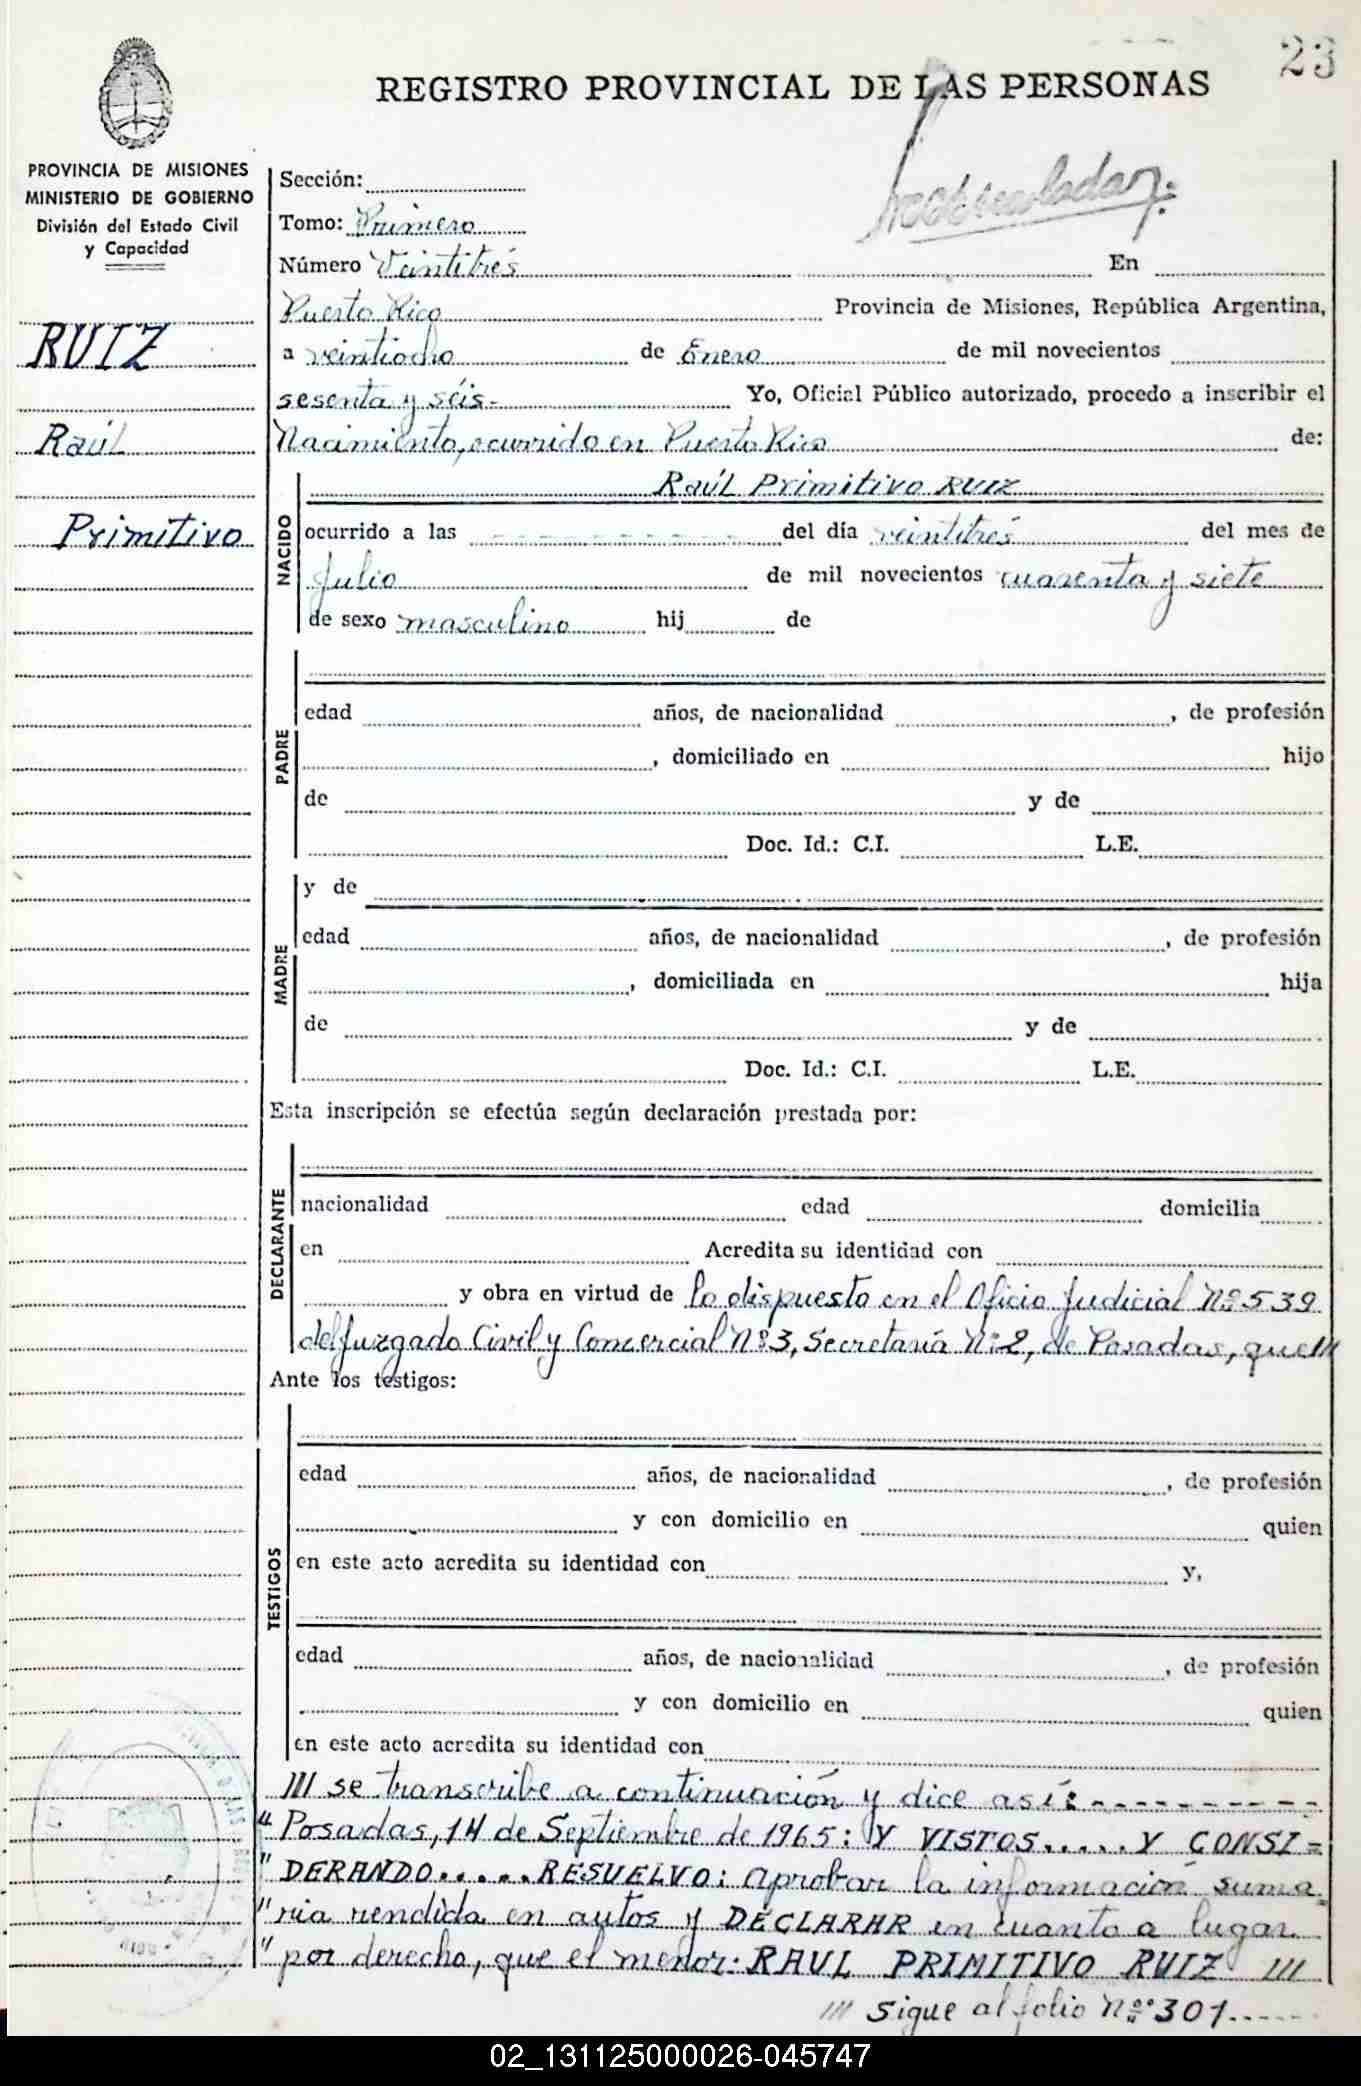 23
REGISTRO PROVINCIAL DE LAS PERSONAS
PROVINCIA DE MISIONES
MINISTERIO DE GOBIERNO
División del Estado Civil
y Capacidad
Sección:
Tomo: Primero
Número Veintitrés En
Puerto Rico Provincia de Misiones, República Argentina,
RUIZ
a veintiocho de Enero de mil novecientos
sesenta y séis.- Yo, Oficial Público autorizado, procedo a inscribir el
Raúl
Nacimiento, ocurrido en Puerto Rico de:
Raúl Primitivo RUIZ
Primitivo
NACIDO
ocurrido a las - - - - - - - - - - del día veintitrés del mes de
Julio de mil novecientos cuarenta y siete
de sexo masculino hij de
PADRE
edad años, de nacionalidad , de profesión
, domiciliado en hijo
de y de
Doc. Id.: C.I. L.E.
MADRE
y de
edad años, de nacionalidad , de profesión
, domiciliada en hija
de y de
Doc. Id.: C.I. L.E.
Esta inscripción se efectúa según declaración prestada por:
DECLARANTE
nacionalidad edad domicilia
en Acredita su identidad con
y obra en virtud de lo dispuesto en el Oficio Judicial Nº 539
del Juzgado Civil y Comercial Nº 3, Secretaría Nº 2, de Posadas, que ///
Ante los testigos:
TESTIGOS
edad años, de nacionalidad , de profesión
y con domicilio en quien
en este acto acredita su identidad con y,
edad años, de nacionalidad , de profesión
y con domicilio en quien
en este acto acredita su identidad con
/// se transcribe a continuación y dice así: - - - - - - - - - -
" Posadas, 14 de Septiembre de 1965: Y VISTOS..... Y CONSI=
" DERANDO..... RESUELVO: Aprobar la información suma=
" ria rendida en autos y DECLARAR en cuanto a lugar
" por derecho, que el menor: RAUL PRIMITIVO RUIZ ///
/// Sigue al folio Nº 301.-----
02_131125000026-045747